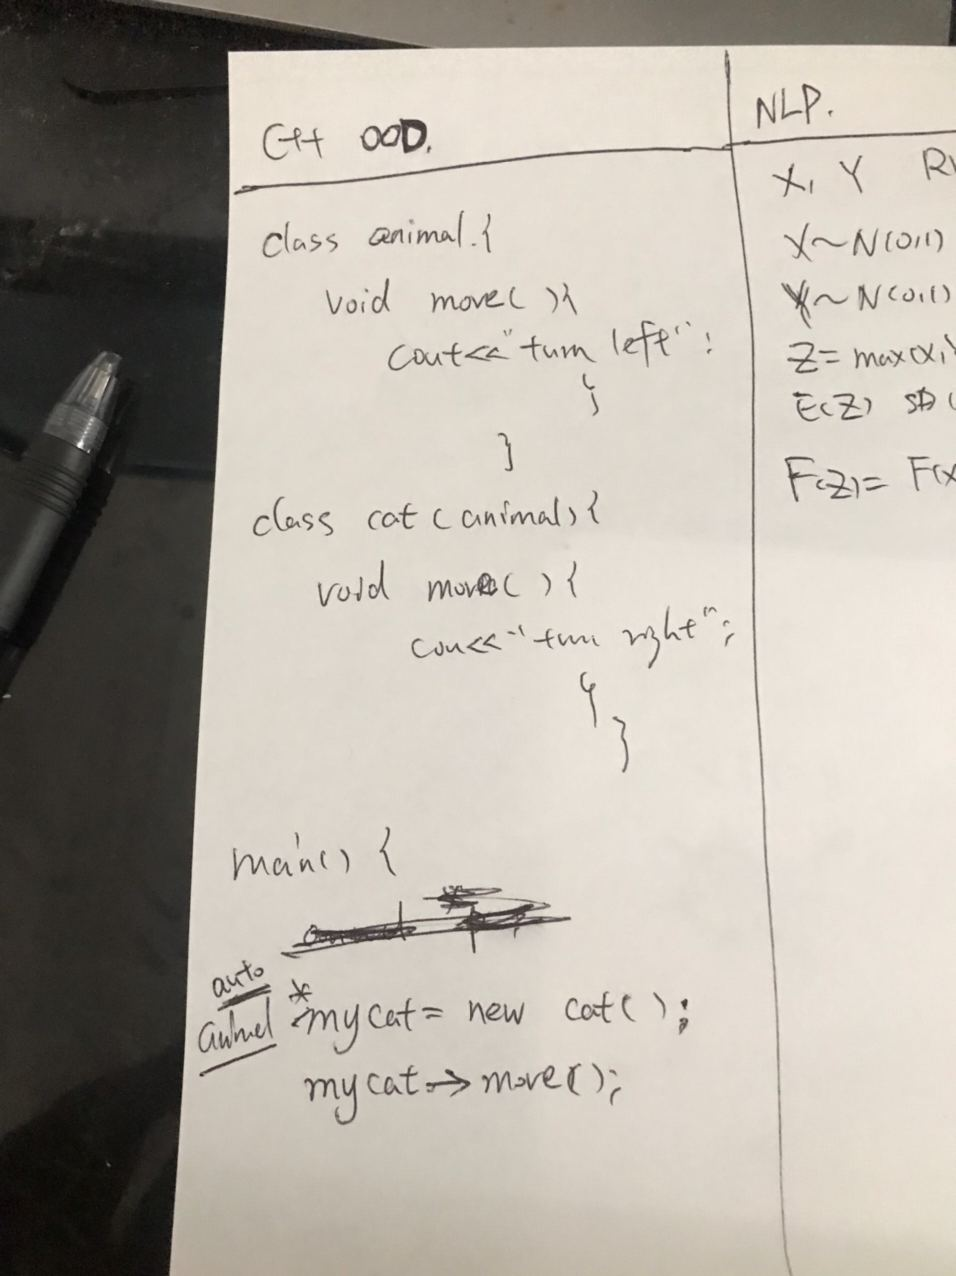 C++ OOD.
class animal.{
void move( ){
cout<<"turn left";
}
}
class cat (animal){
void move( ){
cou<<"turn right";
}
}
main() {
auto
animal *mycat= new cat( );
mycat->move();
NLP.
X, Y
X~N(0,1)
Y~N(0,1)
Z= max(X,Y
E(Z) SD(
F(Z)= F(X